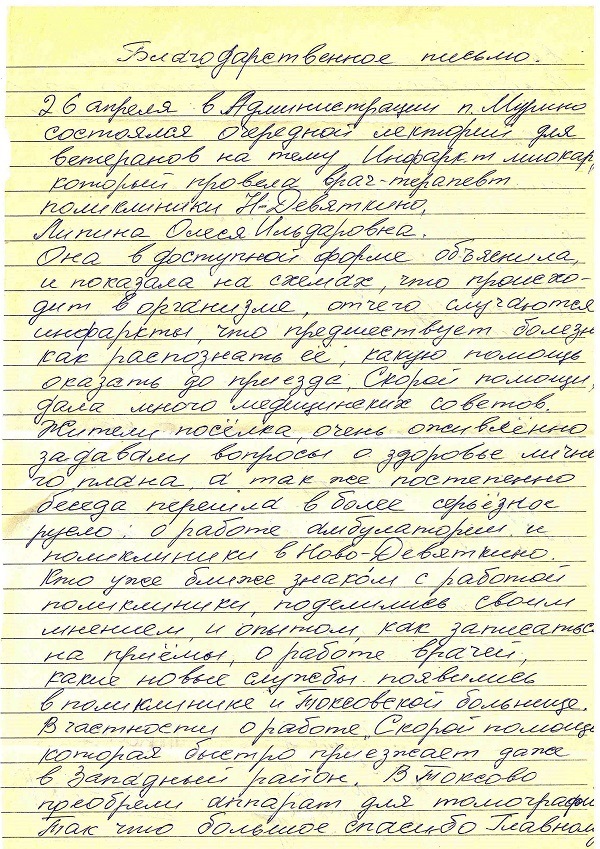 Благодарственное письмо.
26 апреля в Администрации п. Мурино
состоялся очередной лекторий для
ветеранов на тему „Инфаркт миокар
который провела врач-терапевт
поликлиники Н-Девяткино,
Липина Олеся Ильдаровна.
Она в доступной форме объяснила,
и показала на схемах, что происхо-
дит в организме, отчего случаются
инфаркты, что предшествует болезн
как распознать её, какую помощь
оказать до приезда „Скорой помощи,
дала много медицинских советов.
Жители посёлка, очень оживлённо
задавали вопросы о здоровье лично
го плана, а так же постепенно
беседа перешла в более серьёзное
русло: о работе амбулатории и
поликлиники в Ново-Девяткино.
Кто уже ближе знаком с работой
поликлиники, поделились своим
мнением, и опытом, как записаться
на приёмы, о работе врачей,
какие новые службы появились
в поликлинике и Токсовской больнице.
В частности о работе „Скорой помощи
которая быстро приезжает даже
в Западный район. В Токсово
преобрели аппарат для томографи
Так что большое спасибо Главному